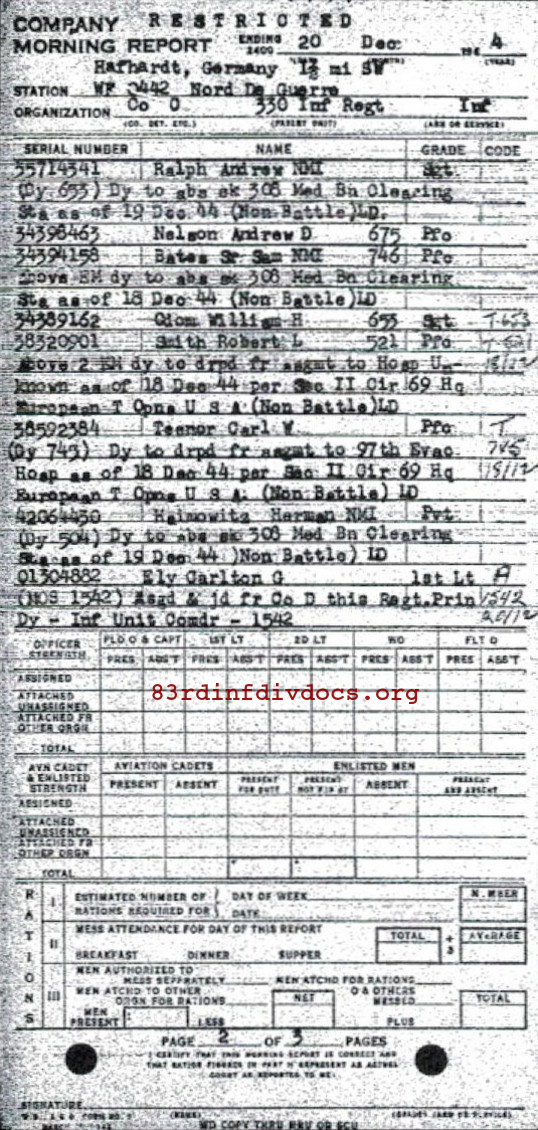 COMPANY RESTRICTED
MORNING REPORT ENDING 2400 20 Dec 194 4
Hafhardt, Germany 1½ mi SW
STATION WF 0442 Nord De Guerre
ORGANIZATION Co C 330 Inf Regt Inf
(CO. DET. ETC.) (PARENT UNIT) (ARM OR SERVICE)
SERIAL NUMBER NAME GRADE CODE
35714341 Ralph Andrew NMI Sgt
(Dy 653) Dy to abs sk 308 Med Bn Clearing
Sta as of 19 Dec 44 (Non Battle)LD.
34398463 Nelson Andrew D 675 Pfc
34394158 Bates Sr Sam NMI 746 Pfc
above EM dy to abs sk 308 Med Bn Clearing
Sta as of 18 Dec 44 (Non Battle)LD
34389162 Odom William H 653 Sgt T-653
38320901 Smith Robert L 521 Pfc T-521
above 2 EM dy to drpd fr asgmt to Hosp Un- 18/12
known as of 18 Dec 44 per Sec II Cir 69 Hq
European T Opns U S A (Non Battle)LD
38592384 Teenor Carl W Pfc T
(Dy 745) Dy to drpd fr asgmt to 97th Evac 745
Hosp as of 18 Dec 44 per Sec II Cir 69 Hq 18/12
European T Opns U S A. (Non Battle) LD
42064430 Haimowitz Herman NMI Pvt
(Dy 504) Dy to abs sk 308 Med Bn Clearing
Sta as of 19 Dec 44 )Non Battle) LD
01304882 Ely Carlton G 1st Lt A
(MOS 1542) Asgd & jd fr Co D this Regt.Prin 1542
Dy - Inf Unit Comdr - 1542 20/12
OFFICER STRENGTH FLD O & CAPT 1ST LT 2D LT WO FLT O
PRES ABS'T PRES ABS'T PRES ABS'T PRES ABS'T PRES ABS'T
ASSIGNED
ATTACHED UNASSIGNED
ATTACHED FR OTHER ORGN
TOTAL
83rdinfdivdocs.org
AVN CADET & ENLISTED STRENGTH AVIATION CADETS ENLISTED MEN
PRESENT ABSENT PRESENT FOR DUTY PRESENT NOT FOR DY ABSENT PRESENT AND ABSENT
ASSIGNED
ATTACHED UNASSIGNED
ATTACHED FR OTHER ORGN
TOTAL
RATIONS
I ESTIMATED NUMBER OF RATIONS REQUIRED FOR DAY OF WEEK DATE NUMBER
II MESS ATTENDANCE FOR DAY OF THIS REPORT TOTAL ÷ 3 AVERAGE
BREAKFAST DINNER SUPPER
III MEN AUTHORIZED TO MESS SEPARATELY MEN ATCHD FOR RATIONS
MEN ATCHD TO OTHER ORGN FOR RATIONS NET O & OTHERS MESSED TOTAL
MEN PRESENT LESS PLUS
PAGE 2 OF 3 PAGES
I CERTIFY THAT THIS MORNING REPORT IS CORRECT AND
THAT RATION FIGURES IN PART II REPRESENT AS ACTUAL
COUNT AS REPORTED TO ME:
SIGNATURE
(NAME) (GRADE) (ARM OR SERVICE)
WD COPY THRU MRU OR SCU